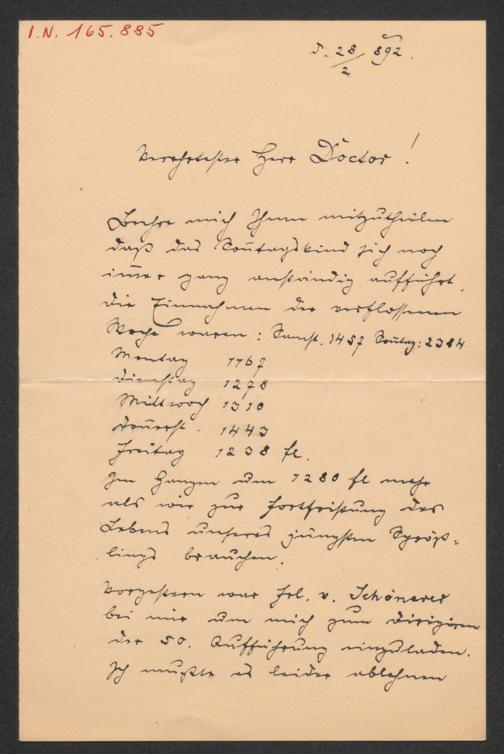 I.N. 165.885
d. 28/2 892.
Verehrtester Herr Doctor!
Beehre mich Ihnen mitzutheilen
daß das Sontagskind sich noch
imer ganz anständig aufführt.
Die Einnahmen der verflossenen
Woche waren: Samst. 1457 Sontag: 2384
Montag 1167
Dienstag 1278
Mittwoch 1310
Donerst. 1443
Freitag 1238 fl.
Im Ganzen um 1280 fl mehr
als wir zur Fortfristung des
Lebens unseres jüngsten Spröß-
lings brauchen.
Vorgestern war Frl. v. Schönerer
bei mir um mich zum Dirigiren
der 50. Aufführung einzuladen.
Ich mußte es leider ablehnen